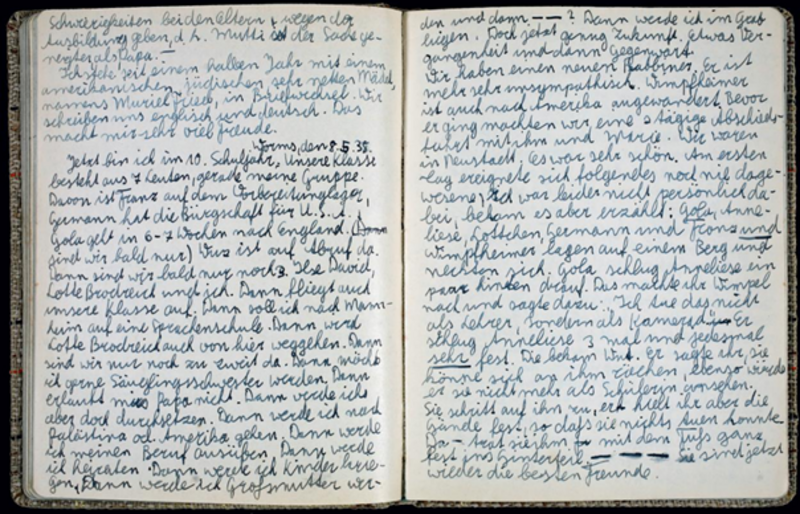 Schwierigkeiten bei den Eltern wegen der
Ausbildung geben, d. h. Mutti ist der Sache ge-
neigter als Papa. —
Ich stehe seit einem halben Jahr mit einem
amerikanischen, jüdischen, sehr netten Mädel,
namens Muriel Fried, in Briefwechsel. Wir
schreiben uns englisch und deutsch. Das
macht mir sehr viel Freude.
Worms, den 8.5.38.
Jetzt bin ich im 10. Schuljahr, Unsere Klasse
besteht aus 7 Leuten, gerade meine Gruppe.
Davon ist Franz auf dem Vorbereitungslager,
Germann hat die Bürgschaft für U.S.A.,
Gola geht in 6-7 Wochen nach England. (Dann
sind wir bald nur) Wux ist auf Abruf da.
Dann sind wir bald nur noch 3. Ilse David,
Lotte Brodreich und ich. Dann fliegt auch
unsere Klasse auf. Dann soll ich nach Mann-
heim auf eine Sprachenschule. Dann wird
Lotte Brodreich auch von hier weggehen. Dann
sind wir nur noch zu zweit da. Dann möcht
ich gerne Säuglingsschwester werden. Dann
erlaubt mirs Papa nicht. Dann werde ichs
aber doch durchsetzen. Dann werde ich nach
Palästina od. Amerika gehen. Dann werde
ich meinen Beruf ausüben. Dann werde
ich heiraten. Dann werde ich Kinder krie-
gen, Dann werde ich Großmutter wer-
den und dann — — ? Dann werde ich im Grab
liegen. Doch jetzt genug Zukunft. Etwas Ver-
gangenheit und dann Gegenwart.
Wir haben einen neuen Rabbiner. Er ist
mehr sehr unsympathisch. Wimpfheimer
ist auch nach Amerika ausgewandert. Bevor
er ging machten wir eine 2 tägige Abschieds-
fahrt mit ihm und Marie. Wir waren
in Neustadt, es war sehr schön. Am ersten
Tag ereignete sich folgendes noch nie dage-
wesene; Ich war leider nicht persönlich da-
bei, bekam es aber erzählt: Gola, Anne-
liese, Lottchen, Germann und Franz und
Wimpfheimer lagen auf einem Berg und
neckten sich. Gola schlug Anneliese ein
paar hinten drauf. Das machte ihr Wimpel
nach und sagte dazu: Ich tue das nicht
als Lehrer, sondern als Kamerad. Er
schlug Anneliese 3 mal und jedesmal
sehr fest. Die bekam Wut. Er sagte ihr, sie
könne sich an ihm rächen, ebenso würde
er sie nicht mehr als Schülerin ansehen.
Sie schritt auf ihn zu, er hielt ihr aber die
Hände fest, so daß sie nichts tuen konnte
Da — trat sie ihm mit dem Fuß ganz
fest ins Hinterteil. — — — Sie sind jetzt
wieder die besten Freunde.